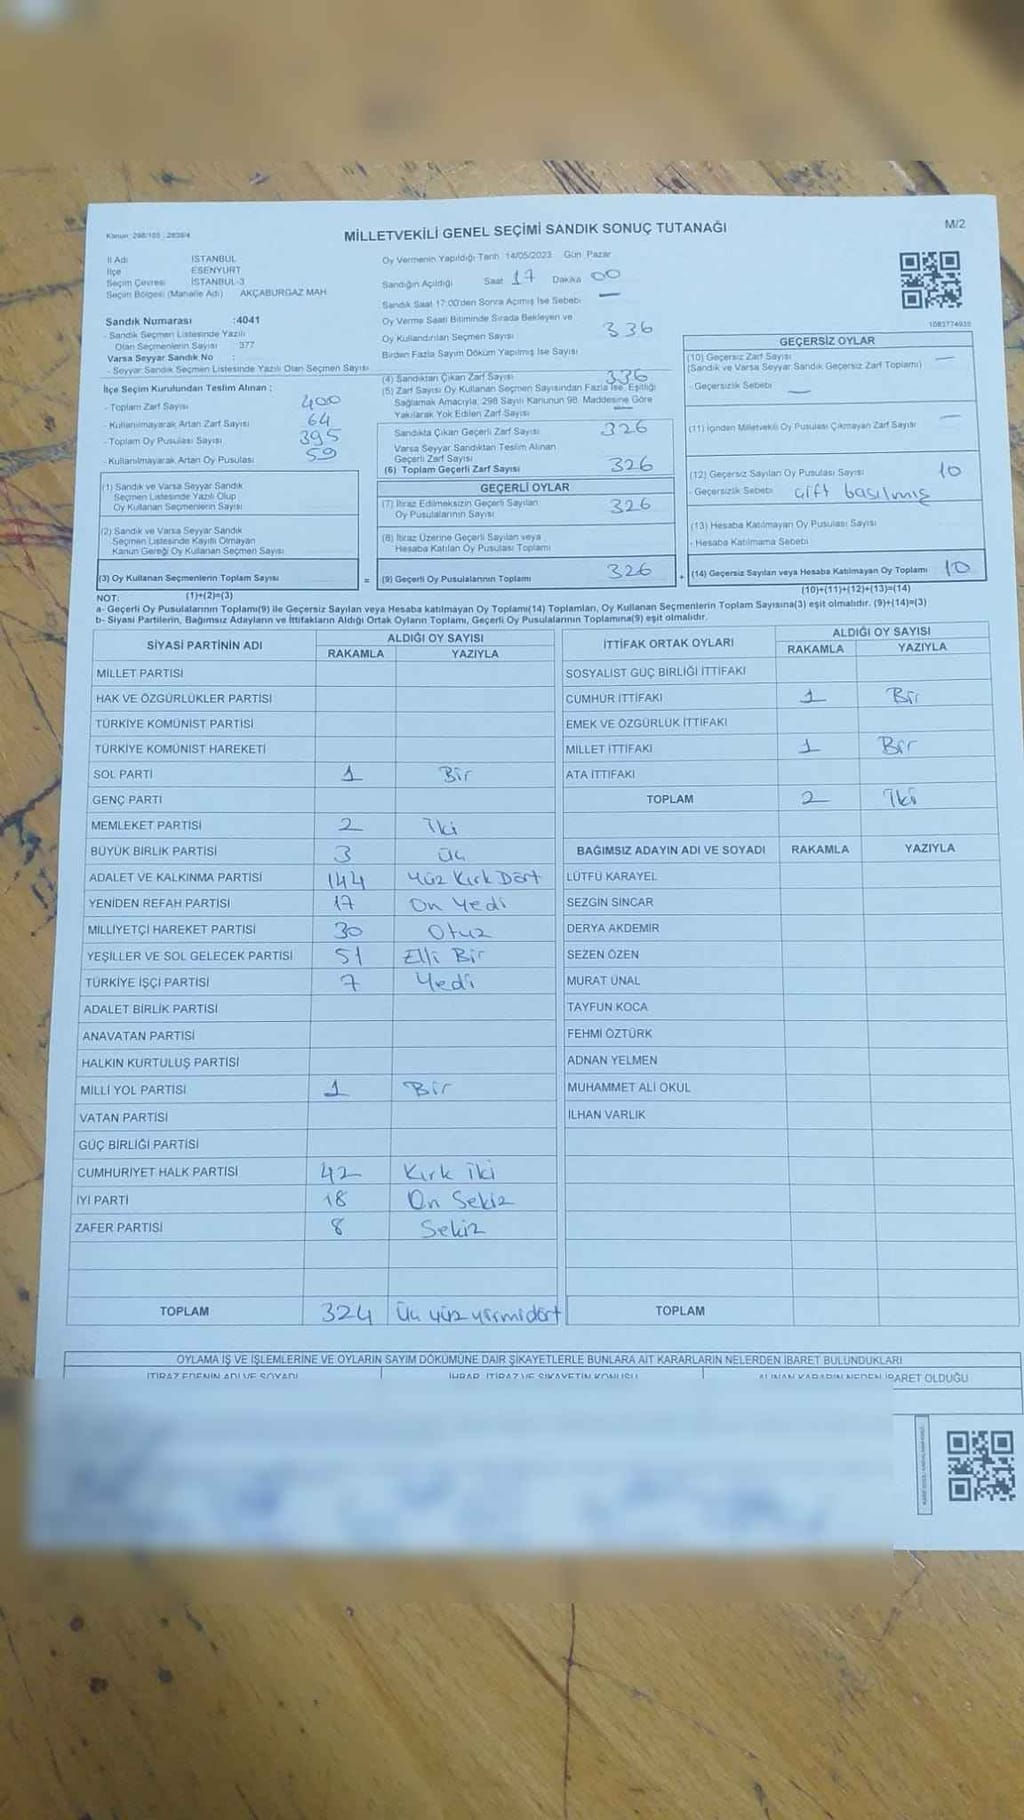 Kanun: 298/105 2839/4
MİLLETVEKİLİ GENEL SEÇİMİ SANDIK SONUÇ TUTANAĞI
M/2
İl Adı İSTANBUL
İlçe ESENYURT
Seçim Çevresi İSTANBUL-3
Seçim Bölgesi (Mahalle Adı) AKÇABURGAZ MAH
Sandık Numarası :4041
- Sandık Seçmen Listesinde Yazılı
Olan Seçmenlerin Sayısı : 377
Varsa Seyyar Sandık No :
- Seyyar Sandık Seçmen Listesinde Yazılı Olan Seçmen Sayısı
İlçe Seçim Kurulundan Teslim Alınan :
- Toplam Zarf Sayısı 400
- Kullanılmayarak Artan Zarf Sayısı 64
- Toplam Oy Pusulası Sayısı 395
- Kullanılmayarak Artan Oy Pusulası 59
(1) Sandık ve Varsa Seyyar Sandık
Seçmen Listesinde Yazılı Olup
Oy Kullanan Seçmenlerin Sayısı
(2) Sandık ve Varsa Seyyar Sandık
Seçmen Listesinde Kayıtlı Olmayan
Kanun Gereği Oy Kullanan Seçmen Sayısı
(3) Oy Kullanan Seçmenlerin Toplam Sayısı =
(1)+(2)=(3)
Oy Vermenin Yapıldığı Tarih 14/05/2023 Gün Pazar
Sandığın Açıldığı Saat 17 Dakika 00
Sandık Saat 17:00'den Sonra Açılmış İse Sebebi —
Oy Verme Saati Bitiminde Sırada Bekleyen ve
Oy Kullandırılan Seçmen Sayısı 336
Birden Fazla Sayım Döküm Yapılmış İse Sayısı
(4) Sandıktan Çıkan Zarf Sayısı 336
(5) Zarf Sayısı Oy Kullanan Seçmen Sayısından Fazla İse, Eşitliği
Sağlamak Amacıyla, 298 Sayılı Kanunun 98. Maddesine Göre
Yakılarak Yok Edilen Zarf Sayısı —
Sandıkta Çıkan Geçerli Zarf Sayısı 326
Varsa Seyyar Sandıktan Teslim Alınan
Geçerli Zarf Sayısı
(6) Toplam Geçerli Zarf Sayısı 326
GEÇERLİ OYLAR
(7) İtiraz Edilmeksizin Geçerli Sayılan
Oy Pusulalarının Sayısı 326
(8) İtiraz Üzerine Geçerli Sayılan veya
Hesaba Katılan Oy Pusulası Toplamı
(9) Geçerli Oy Pusulalarının Toplamı 326 +
1083774935
GEÇERSİZ OYLAR
(10) Geçersiz Zarf Sayısı —
(Sandık ve Varsa Seyyar Sandık Geçersiz Zarf Toplamı)
- Geçersizlik Sebebi —
(11) İçinden Milletvekili Oy Pusulası Çıkmayan Zarf Sayısı —
(12) Geçersiz Sayılan Oy Pusulası Sayısı 10
- Geçersizlik Sebebi çift basılmış
(13) Hesaba Katılmayan Oy Pusulası Sayısı
- Hesaba Katılmama Sebebi
(14) Geçersiz Sayılan veya Hesaba Katılmayan Oy Toplamı 10
(10)+(11)+(12)+(13)=(14)
NOT:
a- Geçerli Oy Pusulalarının Toplamı(9) ile Geçersiz Sayılan veya Hesaba katılmayan Oy Toplamı(14) Toplamları, Oy Kullanan Seçmenlerin Toplam Sayısına(3) eşit olmalıdır. (9)+(14)=(3)
b- Siyasi Partilerin, Bağımsız Adayların ve İttifakların Aldığı Oyların Toplamı, Geçerli Oy Pusulalarının Toplamına(9) eşit olmalıdır.
SİYASİ PARTİNİN ADI ALDIĞI OY SAYISI
RAKAMLA YAZIYLA
MİLLET PARTİSİ
HAK VE ÖZGÜRLÜKLER PARTİSİ
TÜRKİYE KOMÜNİST PARTİSİ
TÜRKİYE KOMÜNİST HAREKETİ
SOL PARTİ 1 Bir
GENÇ PARTİ
MEMLEKET PARTİSİ 2 İki
BÜYÜK BİRLİK PARTİSİ 3 Üç
ADALET VE KALKINMA PARTİSİ 144 Yüz Kırk Dört
YENİDEN REFAH PARTİSİ 17 On Yedi
MİLLİYETÇİ HAREKET PARTİSİ 30 Otuz
YEŞİLLER VE SOL GELECEK PARTİSİ 51 Elli Bir
TÜRKİYE İŞÇİ PARTİSİ 7 Yedi
ADALET BİRLİK PARTİSİ
ANAVATAN PARTİSİ
HALKIN KURTULUŞ PARTİSİ
MİLLİ YOL PARTİSİ 1 Bir
VATAN PARTİSİ
GÜÇ BİRLİĞİ PARTİSİ
CUMHURİYET HALK PARTİSİ 42 Kırk iki
İYİ PARTİ 18 On Sekiz
ZAFER PARTİSİ 8 Sekiz
TOPLAM 324 Üç yüz yirmidört
İTTİFAK ORTAK OYLARI ALDIĞI OY SAYISI
RAKAMLA YAZIYLA
SOSYALİST GÜÇ BİRLİĞİ İTTİFAKI
CUMHUR İTTİFAKI 1 Bir
EMEK VE ÖZGÜRLÜK İTTİFAKI
MİLLET İTTİFAKI 1 Bir
ATA İTTİFAKI
TOPLAM 2 İki
BAĞIMSIZ ADAYIN ADI VE SOYADI RAKAMLA YAZIYLA
LÜTFÜ KARAYEL
SEZGİN SİNCAR
DERYA AKDEMİR
SEZEN ÖZEN
MURAT ÜNAL
TAYFUN KOCA
FEHMİ ÖZTÜRK
ADNAN YELMEN
MUHAMMET ALİ OKUL
İLHAN VARLIK
TOPLAM
OYLAMA İŞ VE İŞLEMLERİNE VE OYLARIN SAYIM DÖKÜMÜNE DAİR ŞİKAYETLERLE BUNLARA AİT KARARLARIN NELERDEN İBARET BULUNDUKLARI
İTİRAZ EDENİN ADI VE SOYADI İHBAR, İTİRAZ VE ŞİKAYETİN KONUSU ALINAN KARARIN NEDEN İBARET OLDUĞU